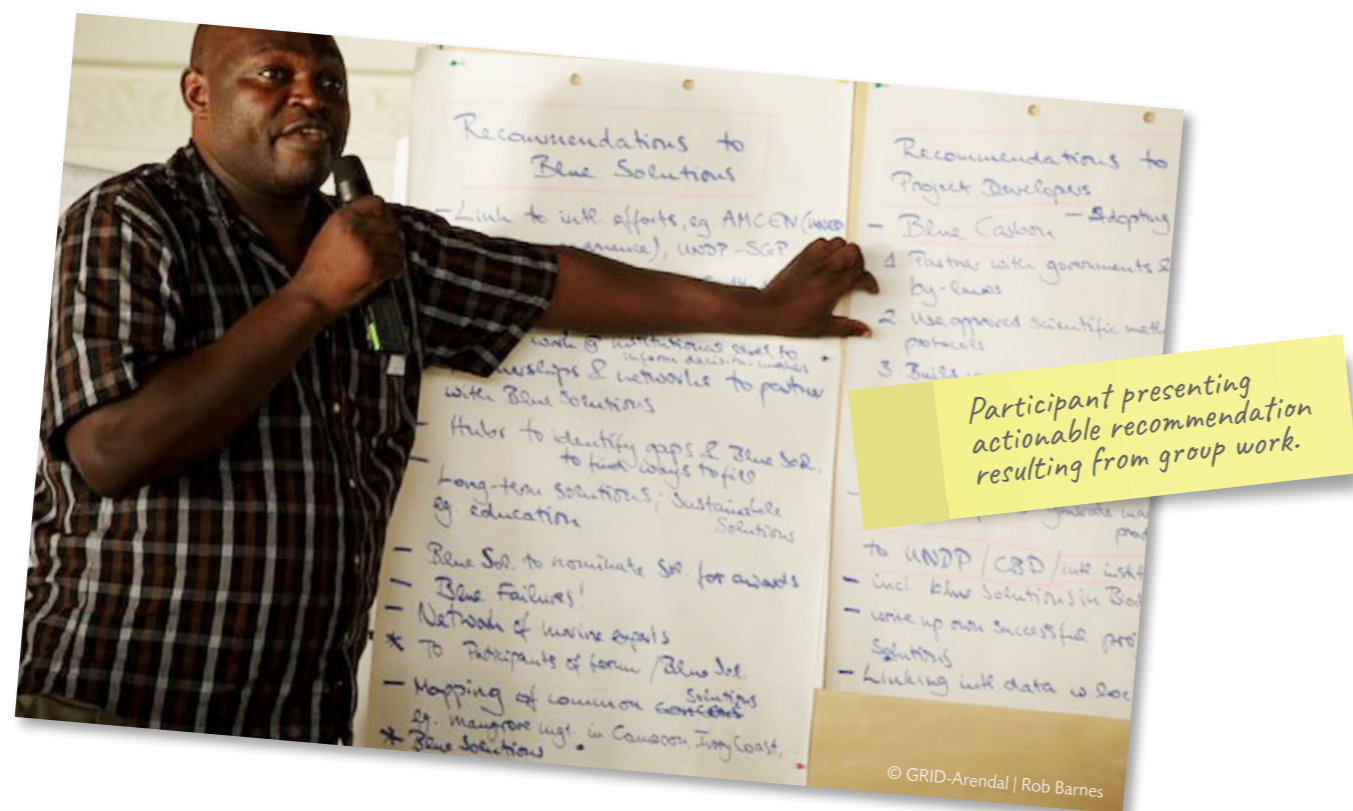 Recommendations to
Blue Solutions
- Link to intl. efforts, eg AMCEN (
), UNDP-SGP
work @ institutional level to
inform decision-makers
& networks to partner
with Blue Solutions
- Hubs to identify gaps & Blue Sol.
to find ways to fill
- Long-term solutions; Sustainable
Solutions
eg education
- Blue Sol. to nominate Sol. for awards
- Blue Failures!
- Network of marine experts
* To Participants of forum / Blue Sol.
- Mapping of common
Solutions
eg. mangrove mgt. in Cameroon, Ivory Coast,
* Blue Solutions
Recommendations to
Project Developers
- Adopting
- Blue Carbon
1 Partner with governments &
by-laws
2 Use approved scientific meth
protocols
3. Build
to UNDP / CBD / intl. instit
- incl. blue solutions in
- write up own successful
Solutions
- Linking intl. data w loc
Participant presenting
actionable recommendation
resulting from group work.
© GRID-Arendal | Rob Barnes